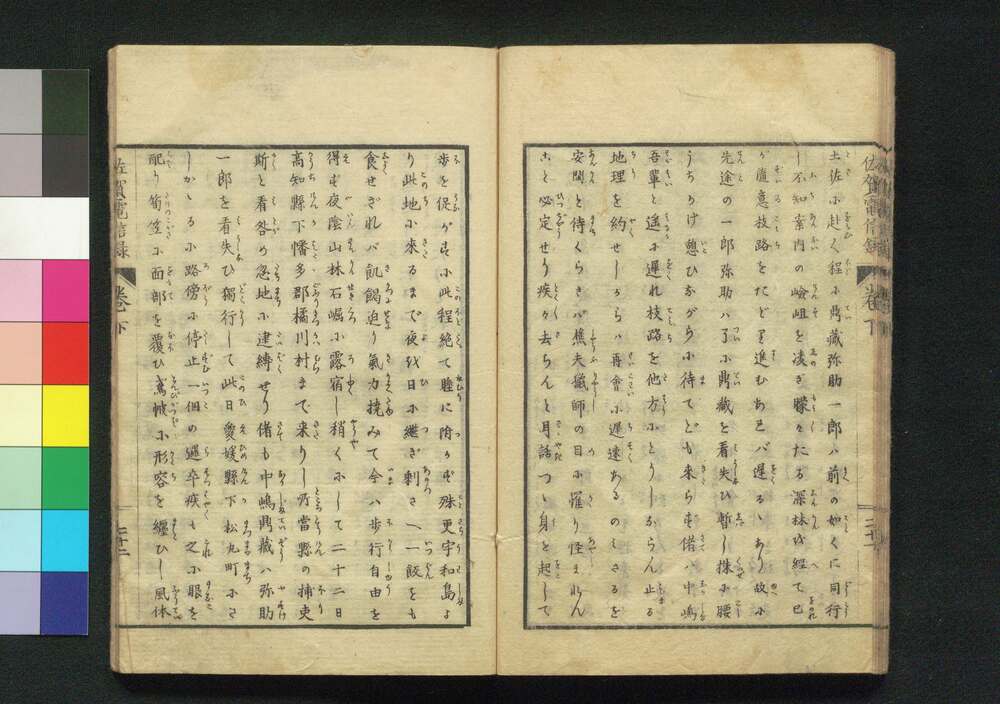 土佐に赴く程に鼎藏弥助一郎ハ前の如くに同行
し不知案内の嶮岨を凌ぎ朦々たる深林を経て已
が随意枝路をたどり進むあれバ遅るゝあり故に
先途の一郎弥助ハ了に鼎藏を看失ひ暫し株に腰
うちかけ憩ひながらに待てども来らず偖ハ中嶋
吾輩と遥に遅れ枝路を他方にとりしならん止る
地理を約せしからハ再會に遅速あるのミさるを
安閑と待くらさバ樵夫獵師の目に罹り怪まれん
こと必定せり疾々去らんと耳語つゝ身を起して
歩を促がすに此程絶て睡に附かず殊更宇和島よ
り此地に来るまで夜を日に継ぎ剰さへ一飯をも
食せざれバ飢餲迫り氣力撓みて今ハ歩行自由を
得ず夜陰山林石崛に露宿し稍くにして二十二日
高知縣下幡多郡橘川村まで来りし乃當縣の捕吏
斯と看咎め忽地に逮縛せり偖も中嶋鼎藏ハ弥助
一郎を看失ひ獨行して此日愛媛縣下松丸町にさ
しかゝるに路傍に停止一個の邏卒疾も之に眼を
配り筍笠に面部を覆ひ蔫帔に形容を纏ひし風体
佐賀電信録
巻下
二十二